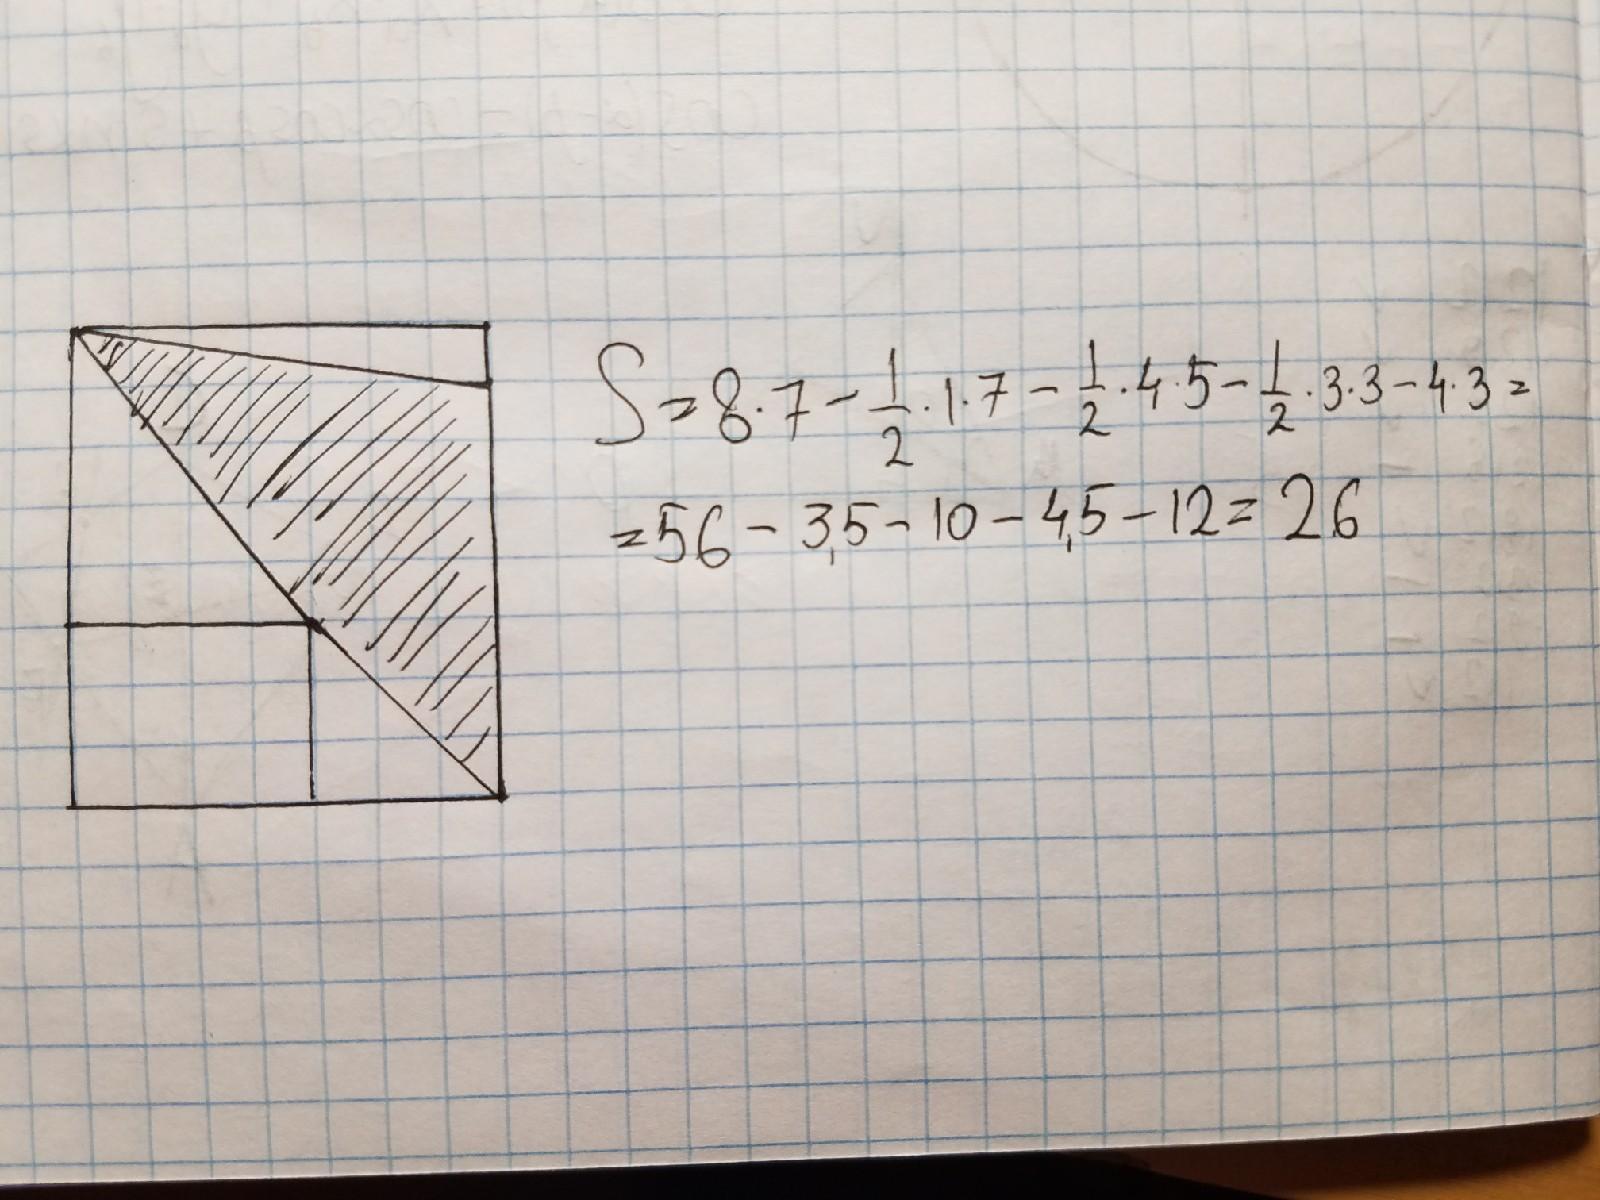 S = 8·7 - 1/2·1·7 - 1/2·4·5 - 1/2·3·3 - 4·3 =
= 56 - 3,5 - 10 - 4,5 - 12 = 26